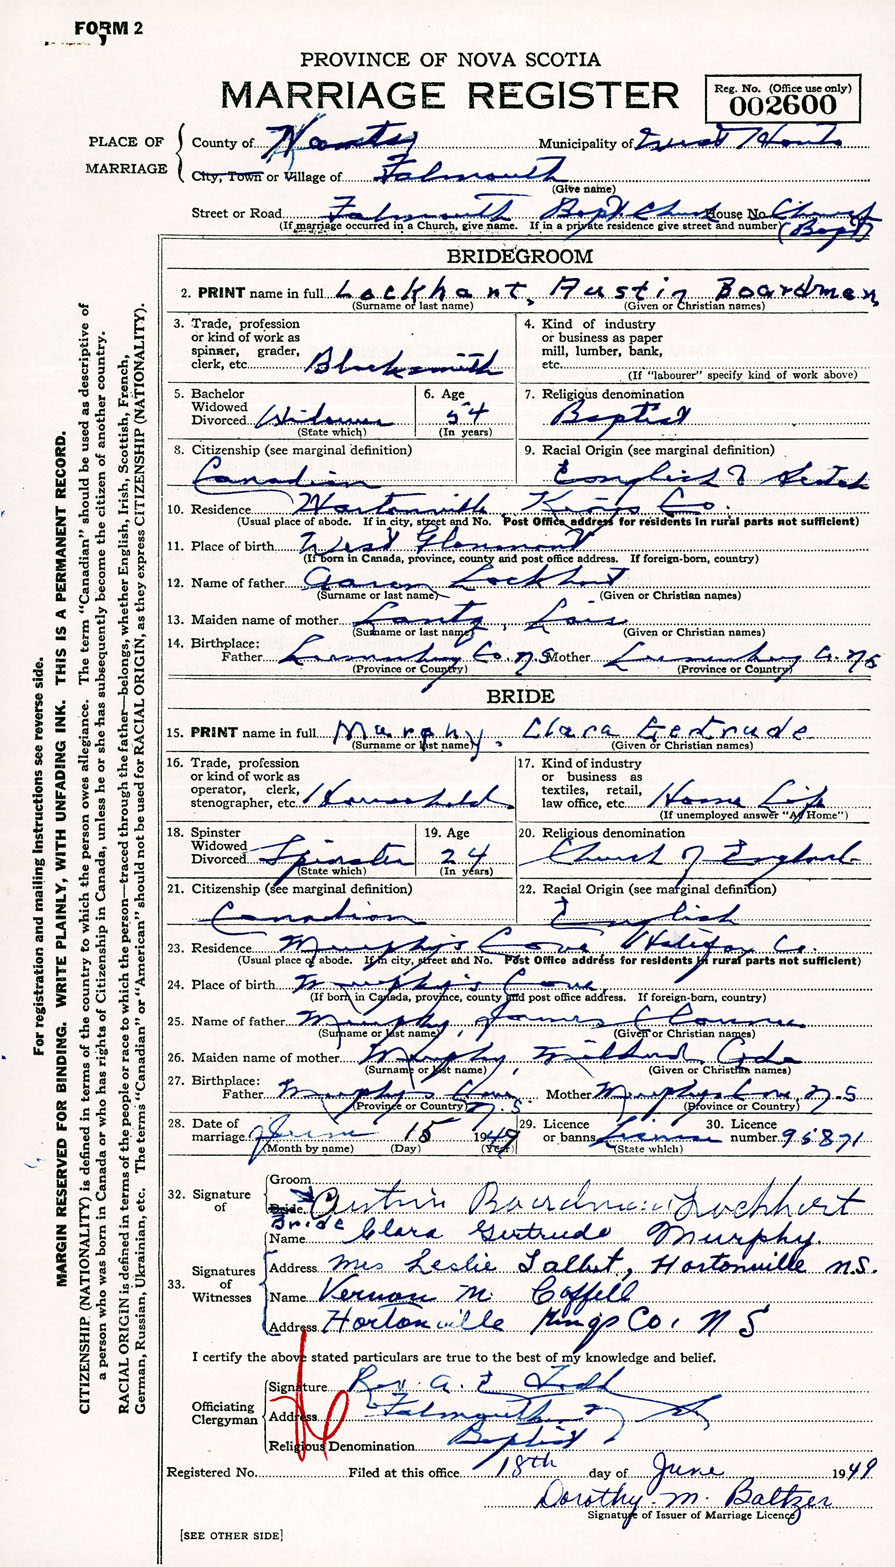 FORM 2
PROVINCE OF NOVA SCOTIA
MARRIAGE REGISTER
Reg. No. (Office use only)
002600
PLACE OF MARRIAGE
County of Hants Municipality of West Hants
City, Town or Village of Falmouth
(Give name)
Street or Road Falmouth Bapt. Church House No. Church
(If marriage occurred in a Church, give name. If in a private residence give street and number) (Bapt)
BRIDEGROOM
2. PRINT name in full Lockhart, Austin Boardman
(Surname or last name) (Given or Christian names)
3. Trade, profession or kind of work as spinner, grader, clerk, etc. Blacksmith
4. Kind of industry or business as paper mill, lumber, bank, etc.
(If "labourer" specify kind of work above)
5. Bachelor Widowed Divorced Widower
(State which)
6. Age 54
(In years)
7. Religious denomination
Baptist
8. Citizenship (see marginal definition)
Canadian
9. Racial Origin (see marginal definition)
English & Scotch
10. Residence Hortonville Kings Co.
(Usual place of abode. If in city, street and No. Post Office address for residents in rural parts not sufficient)
11. Place of birth West
(If born in Canada, province, county and post office address. If foreign-born, country)
12. Name of father Aaron Lockhart
(Surname or last name) (Given or Christian names)
13. Maiden name of mother Lantz, Lois
(Surname or last name) (Given or Christian names)
14. Birthplace:
Father Lunenburg Co. N.S. Mother Lunenburg Co. N.S
(Province or Country) (Province or Country)
BRIDE
15. PRINT name in full Murphy, Clara Gertrude
(Surname or last name) (Given or Christian names)
16. Trade, profession or kind of work as operator, clerk, stenographer, etc. Household
17. Kind of industry or business as textiles, retail, law office, etc. Home Life
(If unemployed answer "At Home")
18. Spinster Widowed Divorced Spinster
(State which)
19. Age 24
(In years)
20. Religious denomination
Church of England
21. Citizenship (see marginal definition)
Canadian
22. Racial Origin (see marginal definition)
English
23. Residence Murphy's Cove Halifax Co.
(Usual place of abode. If in city, street and No. Post Office address for residents in rural parts not sufficient)
24. Place of birth Murphy's Cove,
(If born in Canada, province, county and post office address. If foreign-born, country)
25. Name of father Murphy, James
(Surname or last name) (Given or Christian names)
26. Maiden name of mother Murphy, Mildred
(Surname or last name) (Given or Christian names)
27. Birthplace:
Father Murphy's Cove N.S. Mother Murphys Cove, N.S
(Province or Country) (Province or Country)
28. Date of marriage June 15 1949
(Month by name) (Day) (Year)
29. Licence or banns License
(State which)
30. Licence number 95871
32. Signature of
Groom
Bride Austin Boardman Lockhart
Bride Clara Gertrude Murphy.
33. Signatures of Witnesses
Name
Address Mrs Leslie Talbot, Hortonville N.S.
Name Vernon M. Coffell
Address Hortonville Kings Co, N S
I certify the above stated particulars are true to the best of my knowledge and belief.
Officiating Clergyman
Signature Rev. A. E. Todd
Address Falmouth
Religious Denomination Baptist
Registered No. Filed at this office 18th day of June 1949
Dorothy M. Baltzer
Signature of Issuer of Marriage Licence
[SEE OTHER SIDE]
For registration and mailing instructions see reverse side.
MARGIN RESERVED FOR BINDING. WRITE PLAINLY, WITH UNFADING INK. THIS IS A PERMANENT RECORD.
CITIZENSHIP (NATIONALITY) is defined in terms of the country to which the person owes allegiance. The term "Canadian" should be used as descriptive of
a person who was born in Canada or who has rights of Citizenship in Canada, unless he or she has subsequently become the citizen of another country.
RACIAL ORIGIN is defined in terms of the people or race to which the person—traced through the father—belongs, whether English, Irish, Scottish, French,
German, Russian, Ukrainian, etc. The terms "Canadian" or "American" should not be used for RACIAL ORIGIN, as they express CITIZENSHIP (NATIONALITY).